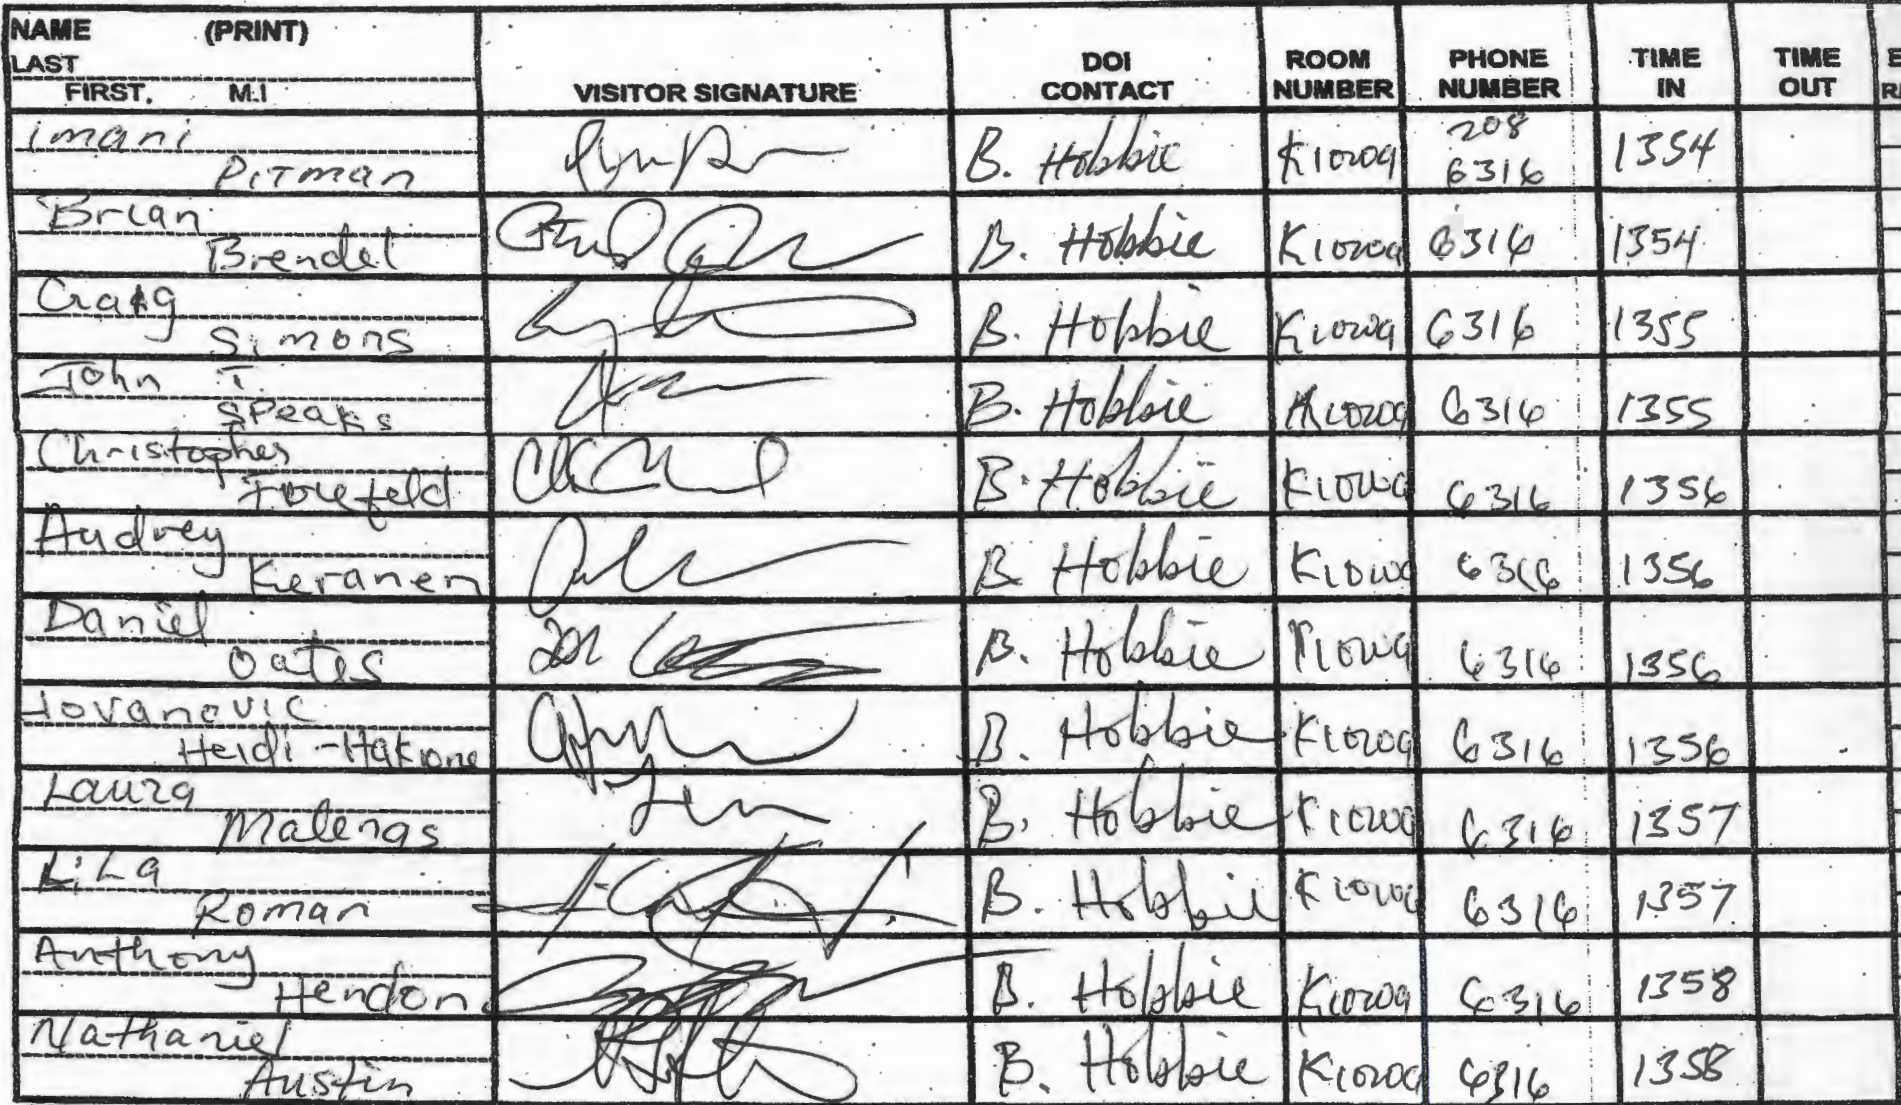 NAME (PRINT)
LAST
FIRST, M.I
VISITOR SIGNATURE
DOI
CONTACT
ROOM
NUMBER
PHONE
NUMBER
TIME
IN
TIME
OUT
imani
Pitman
B. Hobbie Kiowa 208
6316 1354
Brian
Brendel
B. Hobbie Kiowa 6316 1354
Craig
Simons
B. Hobbie Kiowa 6316 1355
John T.
Speaks
B. Hobbie Kiowa 6316 1355
Christopher
B. Hobbie Kiowa 6316 1356
Audrey
Keranen
B. Hobbie Kiowa 6316 1356
Daniel
Oates
B. Hobbie Kiowa 6316 1356
Jovanovic
Heidi-Hakone
B. Hobbie Kiowa 6316 1356
Laura
Malenas
B. Hobbie Kiowa 6316 1357
Lila
Roman
B. Hobbie Kiowa 6316 1357
Anthony
Hendon
B. Hobbie Kiowa 6316 1358
Nathaniel
Austin
B. Hobbie Kiowa 6316 1358